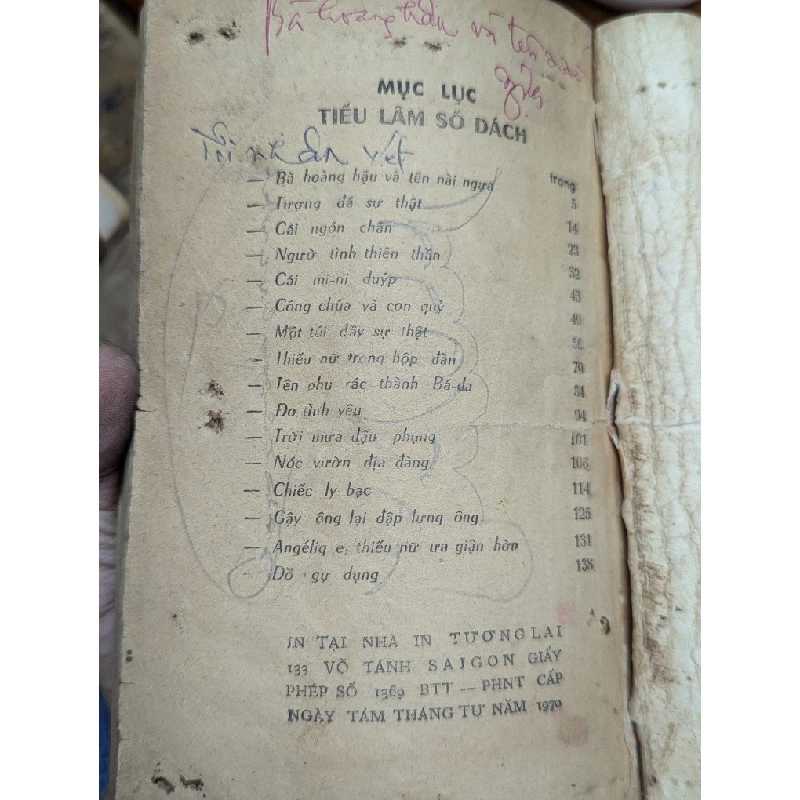 Bà hoàng hậu và tên nài
ngựa
MỤC LỤC
TIẾU LÂM SỐ DÁCH
vết
trang
— Bà hoàng hậu và tên nài ngựa 5
— Tượng đá sự thật 14
— Cái ngón chân 23
— Người tình thiên thần 32
— Cái mi-ni duýp 43
— Công chúa và con quỷ 49
— Một túi đầy sự thật 58
— Thiếu nữ trong hộp đàn 79
— Tên phu rác thành Bá-da 84
— Đo tình yêu 94
— Trời mưa đậu phụng 101
— Nóc vườn địa đàng 106
— Chiếc ly bạc 114
— Gậy ông lại đập lưng ông 125
— Angéliq e, thiếu nữ ưa giận hờn 131
— Đồ gự dụng 138
IN TẠI NHÀ IN TƯƠNG LAI
133 VÕ TÁNH SAIGON GIẤY
PHÉP SỐ 1369 BTT — PHNT CẤP
NGÀY TÁM THÁNG TƯ NĂM 1970